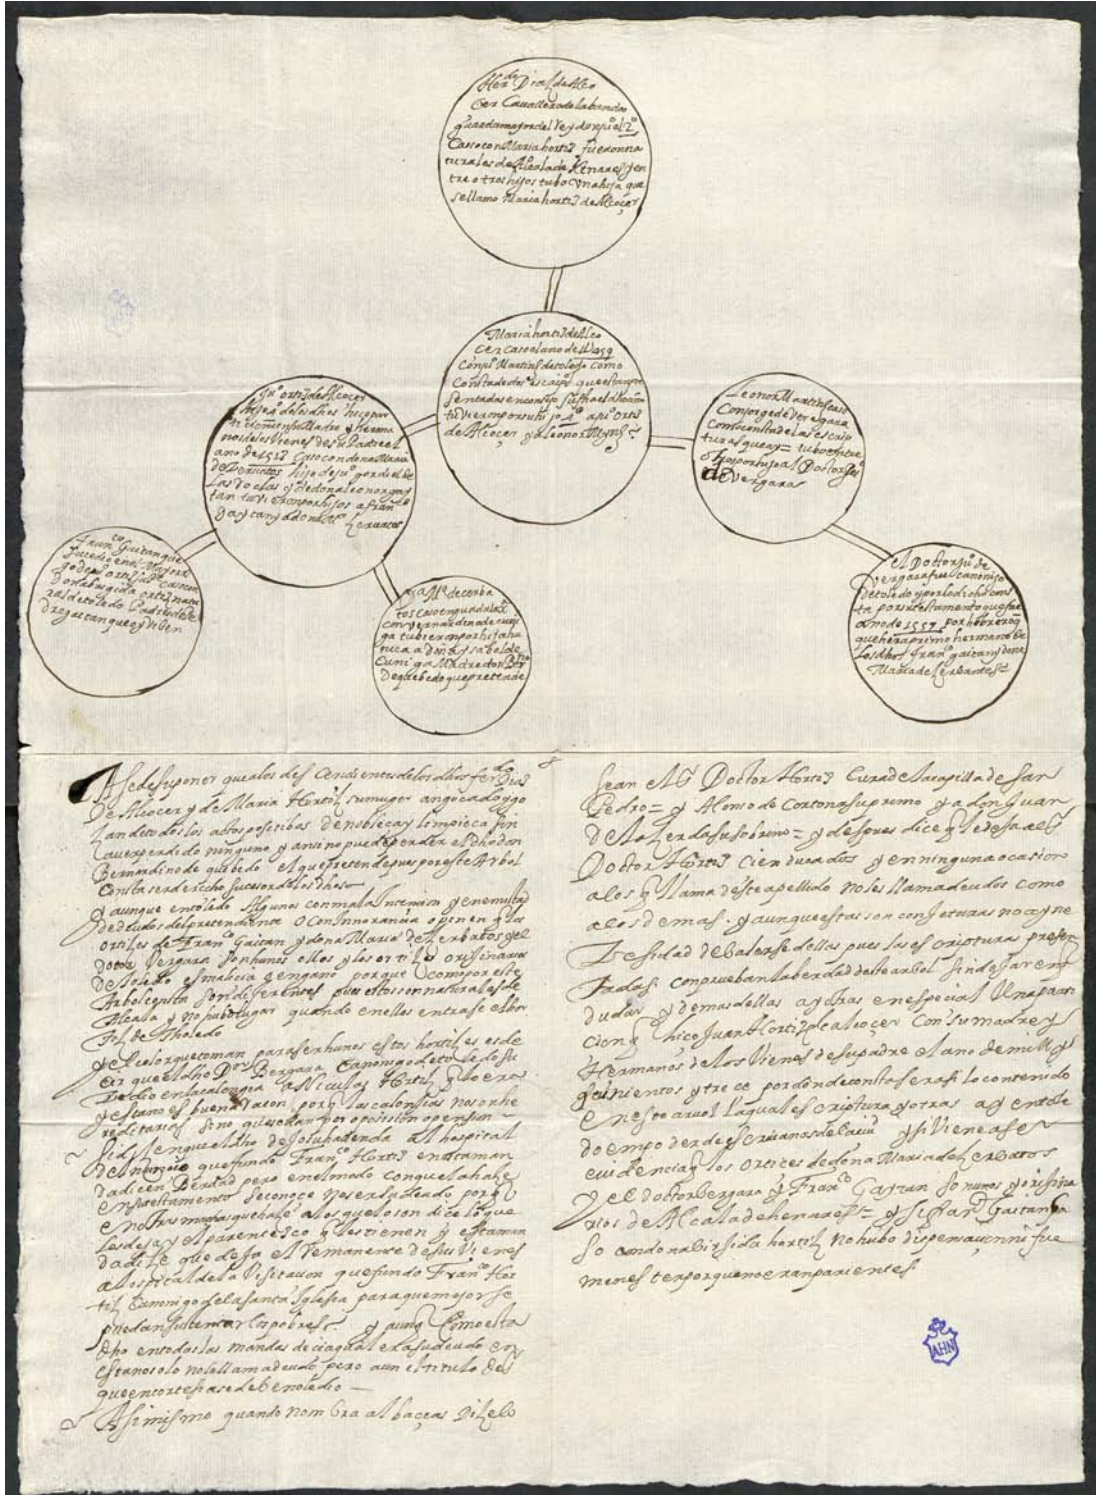 Her^do Diaz de Alco
cer Cavallero de la banda
guarda mayor del Rey don ju^o el 2^o
Casso con Maria hortiz fueron na
turales de Alcala de Henares y en
tre otros hijos tubo una hija que
se llamo Maria hortiz de Alcoçer
Maria hortiz de Alco
cer caso el ano de 1459
con ju^o Martinez de toledo como
consta de dos escrip^s que estan pre
sentadas en consejo
tuvieron por su hijo a ju^o ortiz
de Alcoçer y a leonor Mrnz
Ju^o ortiz de Alcoçer
hijo de los dhos hiço par
tiçion con su Madre y herma
nos de los vienes de su Padre el
ano de 1513 Caso con dona Maria
de Zervatos hija de ju^o gordiel de
las Doclas y de dona leonor gay
tan tuvieron por hijos a fran^co
gaytan y a dona M^a Zervatos
Leonor Martinez caso
con Jorge de Vergara
como consta de las escrip
turas que ay = tubo entre
otros por hijo al Doctor Ju^o
de Vergara
Fran^co Gaitan que
sucedio en el Mayoraz
go de ju^o ortiz su P^e caso con
Dona brigida ortiz natu
ral de toledo Padres de Pe
dro gaitan que oy viven
D^a M^a de cerba
tos caso en guadalax^a
con vernardino de cuni
ga tubieron por hija hu
nica a Doña ysabel de
Cuniga Madre de don Ber^no
De quebedo que pretende
el Doctor ju^o de
vergara fue canonigo
de toledo y por lo dicho cons
ta por su testamento que fue
ano de 1557 por hebrero
que hera primo hermano de
los dhos fran^co gaitan y dona
Maria de Cerbantes
A se de suponer que a los desçendientes de los dhos fer^do Diaz
de Alcocer y de Maria Hortiz su muger an goçado y go
zan de todos los actos posetibos de nobleça y limpieça sin
aver perdido ninguno y ansi no puede perder el dho don
Bernardino de quebedo el que pretende pues por este Arbol
consta ser derecho sucesor de los dhos
y aunque en toledo Algunos con mala Intencion y enemistad
de deudos del pretendiente o con Innorancia opinen q los
ortizes de Fran^co Gaitan y dona Maria de Zerbatos y el
dotor Vergara son hunos ellos y los ortizes orijinarios
de toledo es malicia e engano porque como por este
Arbol consta son diferentes pues estos son naturales de
Alcala y no hubo lugar quando en ellos entrase el hor
tiz de tholedo
y el color que toman para ser hunos estos hortizes es de
cir que el dho D^or Bergara Canonigo de toledo su
cedio en la calongia a Niculas Hortiz q lo era
y esta no es buena racon porq las calonjias no son he
reditarias sino que se dan por oposicion o pension
Si dizen que el dho dejo su hacienda al hospital
del nuncio que fundo Fran^co Hortiz en esta man
da dicen Berdad pero en el modo con que la haze
en su testamento se conoce no ser su deudo porq
en otras muchas que haze a los que lo son dice lo que
les deja y el parentesco q les tienen y esta man
da dize que deja el Remanente de sus Vienes
al ospital de la Visitacion que fundo Fran^co Hor
tiz Canonigo de la santa Iglesia para que mejor se
puedan sustentar los pobres y aunq como esta
dho en todas las mandas decia qual era su deudo en
esta no solo no le llama deudo pero aun el titulo de
que en cortesia se debe no le dio
Asimismo quando nombra albaçeas Dize lo
sean el Sr Doctor Hortiz Cura de la capilla de San
Pedro = y Alonso de Cortona su primo y a don Juan
de la Zerda su sobrino = y despues dice q le deja al Sr
Doctor Hortiz cien ducados y en ninguna ocasion
a los q llama deste apellido no les llama deudos como
a los demas. y aunque estas son conjeturas no ay ne
zesidad de balerse dellas pues las escripturas presen
tadas comprueban la berdad deste arbol sin dejar en q
dudar y demas dellas ay otras en especial una parti
cion q hiço Juan Hortiz de alcoçer con su madre y
Hermanos de los Vienes de su padre el ano de mill y
quinientos y trece por donde consta ser asi lo contenido
en este arvol la qual escriptura y otras ay en tole
do en poder de escrivanos del Cavi^o y si viene a ser
evidencia q los ortices de dona Maria de Zerbatos
y el doctor bergara y Fran^co Gaytan son unos y orijina
rios de Alcala de henares = y si fran^co Gaitan ca
so con dona birjida hortiz no hubo dispensacion ni fue
menester porque no eran parientes.
AHN